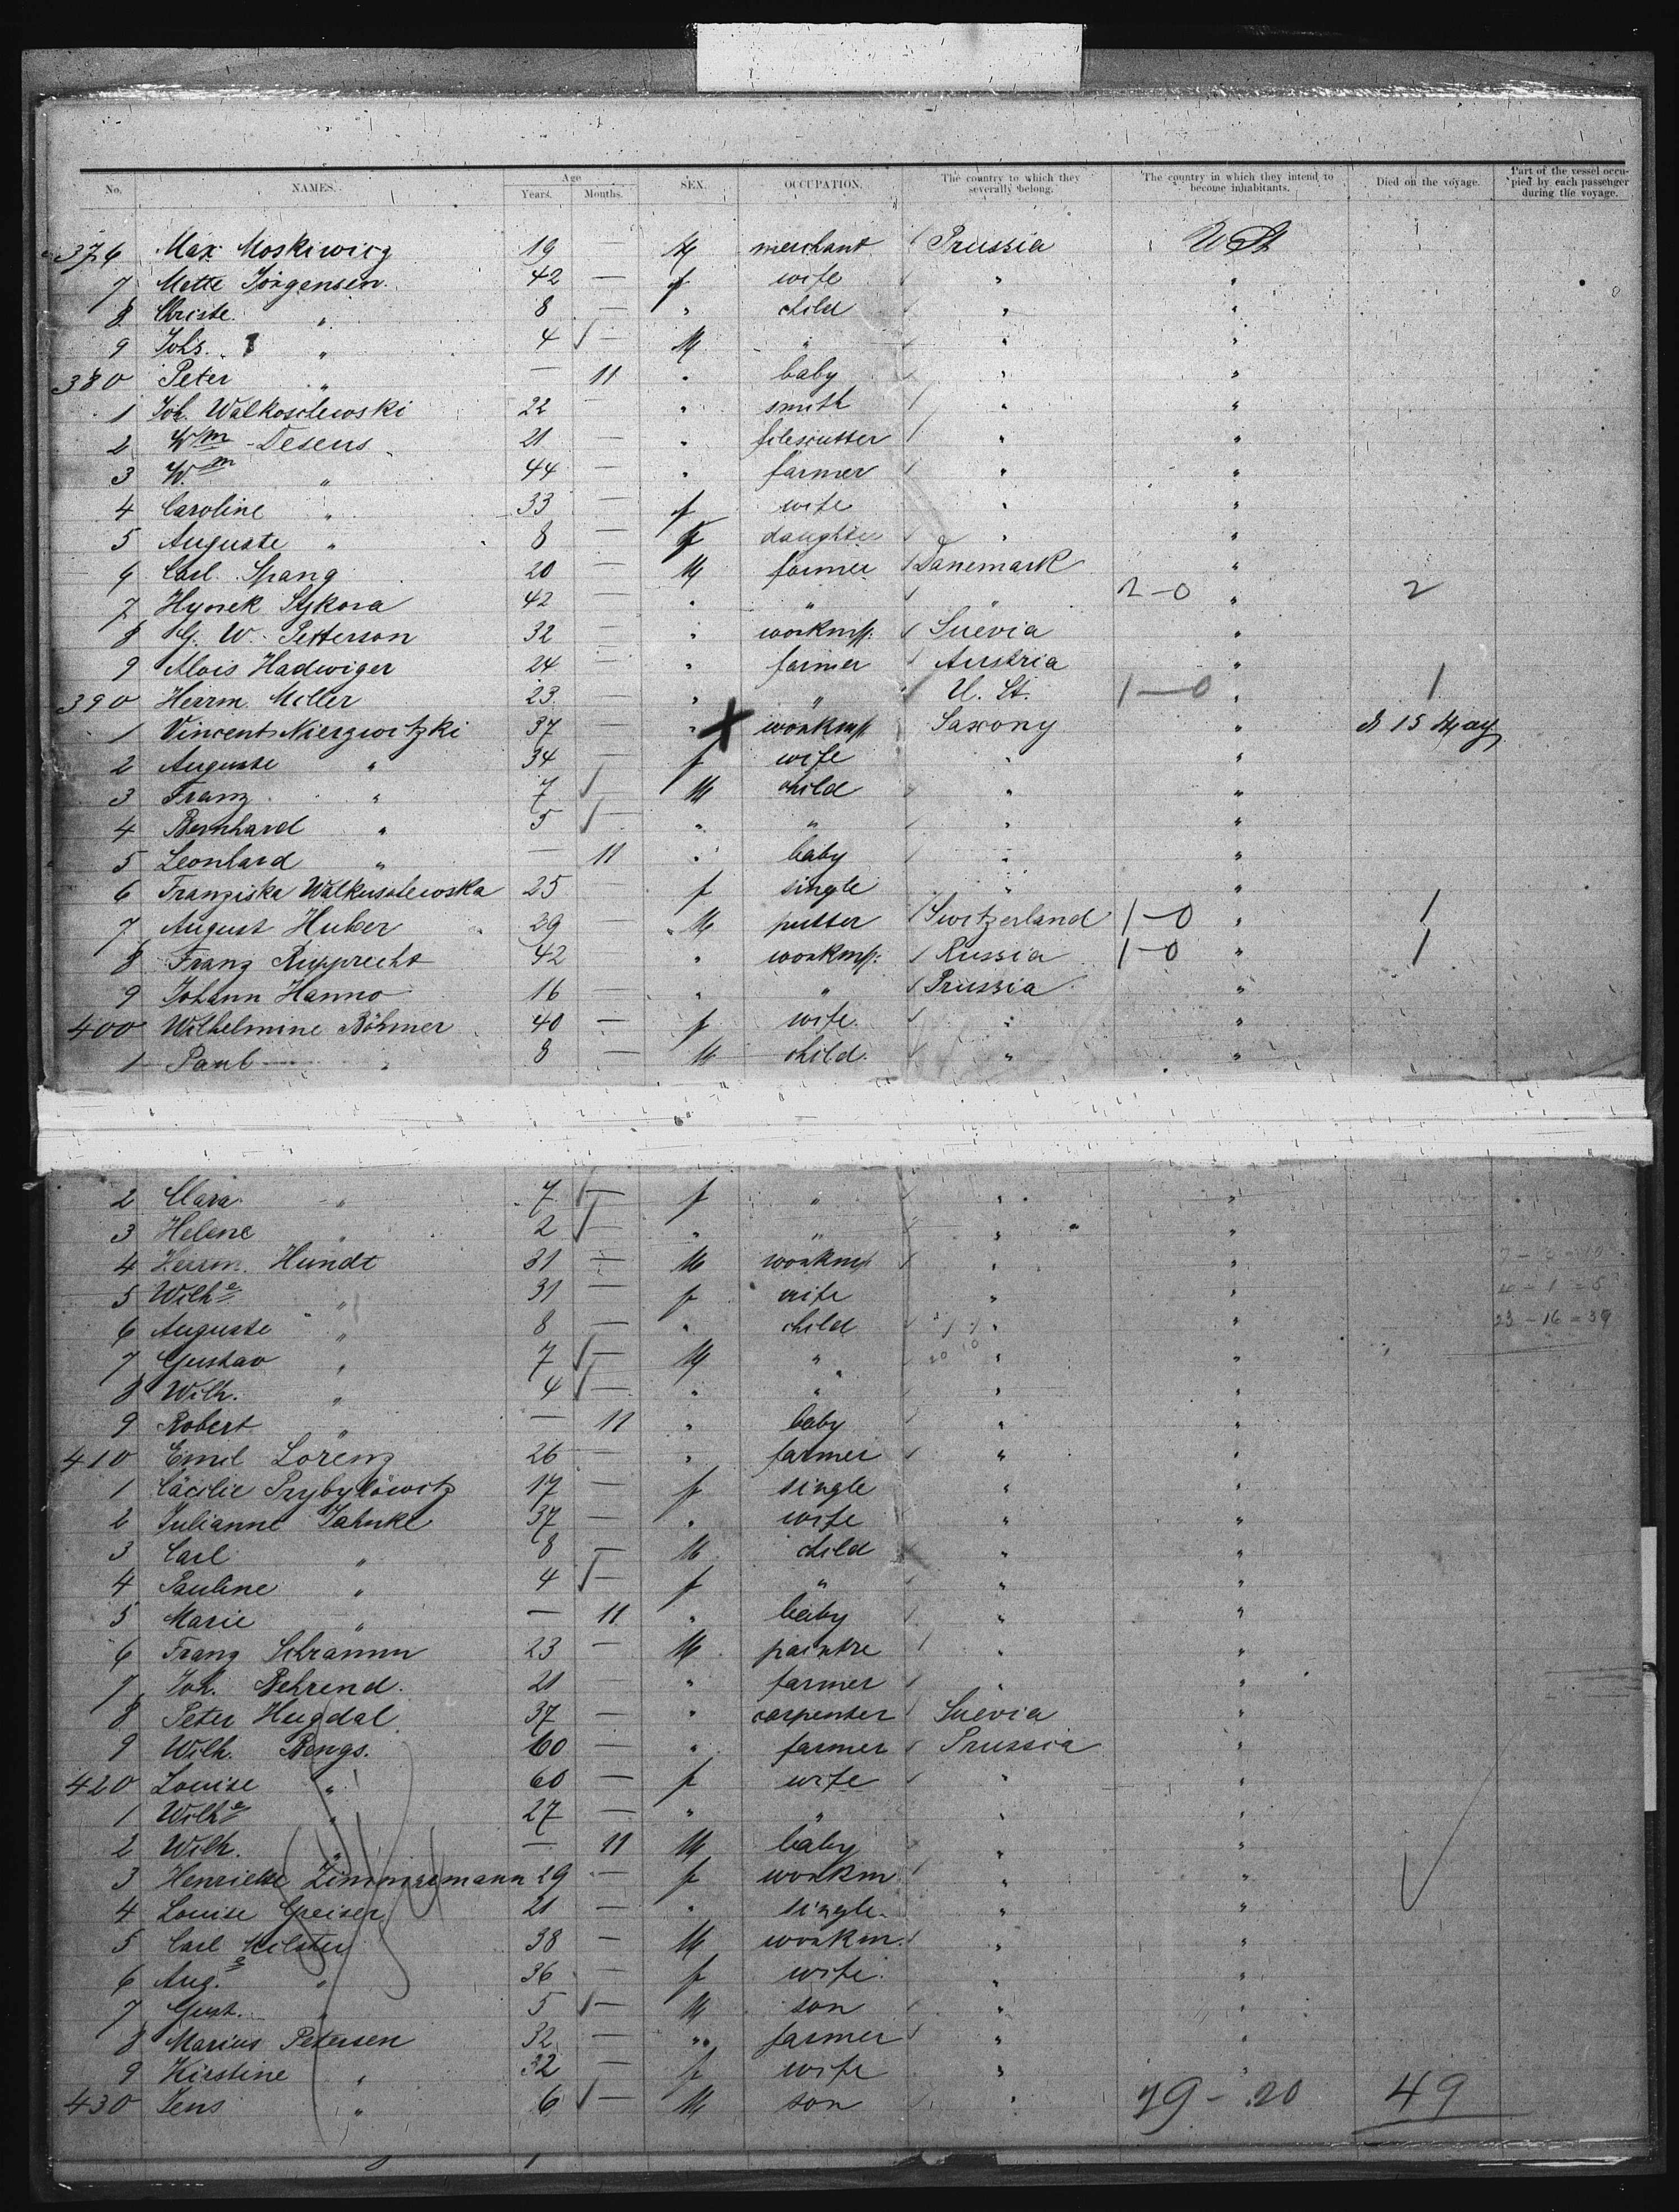 No. NAMES. Age Years. Months. SEX. OCCUPATION. The country to which they severally belong. The country in which they intend to become inhabitants. Died on the voyage. Part of the vessel occupied by each passenger during the voyage.
376 Max Moskiwicz 19 — M merchant Prussia U St
7 Mette Jörgensen 42 — f wife " "
8 Christe " 8 — " child " "
9 Johs. " 4 — M " " "
380 Peter " — 11 " baby " "
1 Joh. Walkoschewski 22 — " smith " "
2 Wm Desens 21 — " filescutter " "
3 Wm " 44 — " farmer " "
4 Caroline " 33 — f wife " "
5 Auguste " 8 — f daughter " "
6 Carl Spang 20 — M farmer Danemark "
7 Hynek Sykora 42 — " " " 2-0 " 2
8 G. W. Petterson 32 — " workmp. Suevia "
9 Alois Hadwiger 24 — " farmer Austria "
390 Herrm. Miller 23 — " " U. St. 1-0 " 1
1 Vincent Niergwitzki 37 — " X workmp Saxony " d 15 May
2 Auguste " 34 — f wife " "
3 Franz " 7 — M child " "
4 Bernhard " 5 — " " " "
5 Leonhard " — 11 " baby " "
6 Franziska Walkuschewska 25 — f single " "
7 August Huber 29 — M putter Switzerland 1-0 " 1
8 Franz Rupprecht 42 — " workmp. Russia 1-0 " 1
9 Johann Hanno 16 — " " Prussia "
400 Wilhelmine Böhmer 40 — f wife " "
1 Paul " 8 — M child " "
2 Clara " 7 — f " " "
3 Helene " 2 — " " " "
4 Herrm. Hundt 31 — M workmp " "
5 Wilhe " 31 — f wife " "
6 Auguste " 8 — " child " " 23-16=39
7 Gustav " 7 — M " " "
8 Wilh. " 4 — " " " "
9 Robert " — 11 " baby " "
410 Emil Lorenz 26 — " farmer " "
1 Cäcilie Przybylowitz 17 — f single " "
2 Julianne Jahnke 37 — " wife " "
3 Carl " 8 — M child " "
4 Pauline " 4 — f " " "
5 Marie " — 11 " baby " "
6 Franz Schramm 23 — M paintre " "
7 Joh. Behrend 21 — " farmer " "
8 Peter Hugdal 37 — " carpenter Suevia "
9 Wilh. Bengs. 60 — " farmer Prussia "
420 Louise " 60 — f wife " "
1 Wilhe " 27 — " " " "
2 Wilh. " — 11 M baby " "
3 Henriette Zimmermann 29 — f workm " "
4 Louise Greiser 21 — " single " "
5 Carl Kilster 38 — M workm. " "
6 Aug.e " 36 — f wife " "
7 Gust. " 5 — M son " "
8 Marius Petersen 32 — " farmer " "
9 Kirstine " 32 — f wife " "
430 Jens " 6 — M son " 29-20 49